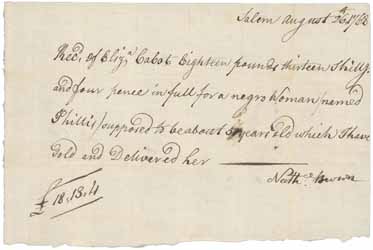 Salem August 1768
Rec.d of Eliz.a Cabot Eighteen pounds thirteen Shillg.
and four pence in full for a negro Woman (named
Phillis) supposed to be about years old which I have
Sold and Delivered her
Nath.l Brown
£ 18.13.4